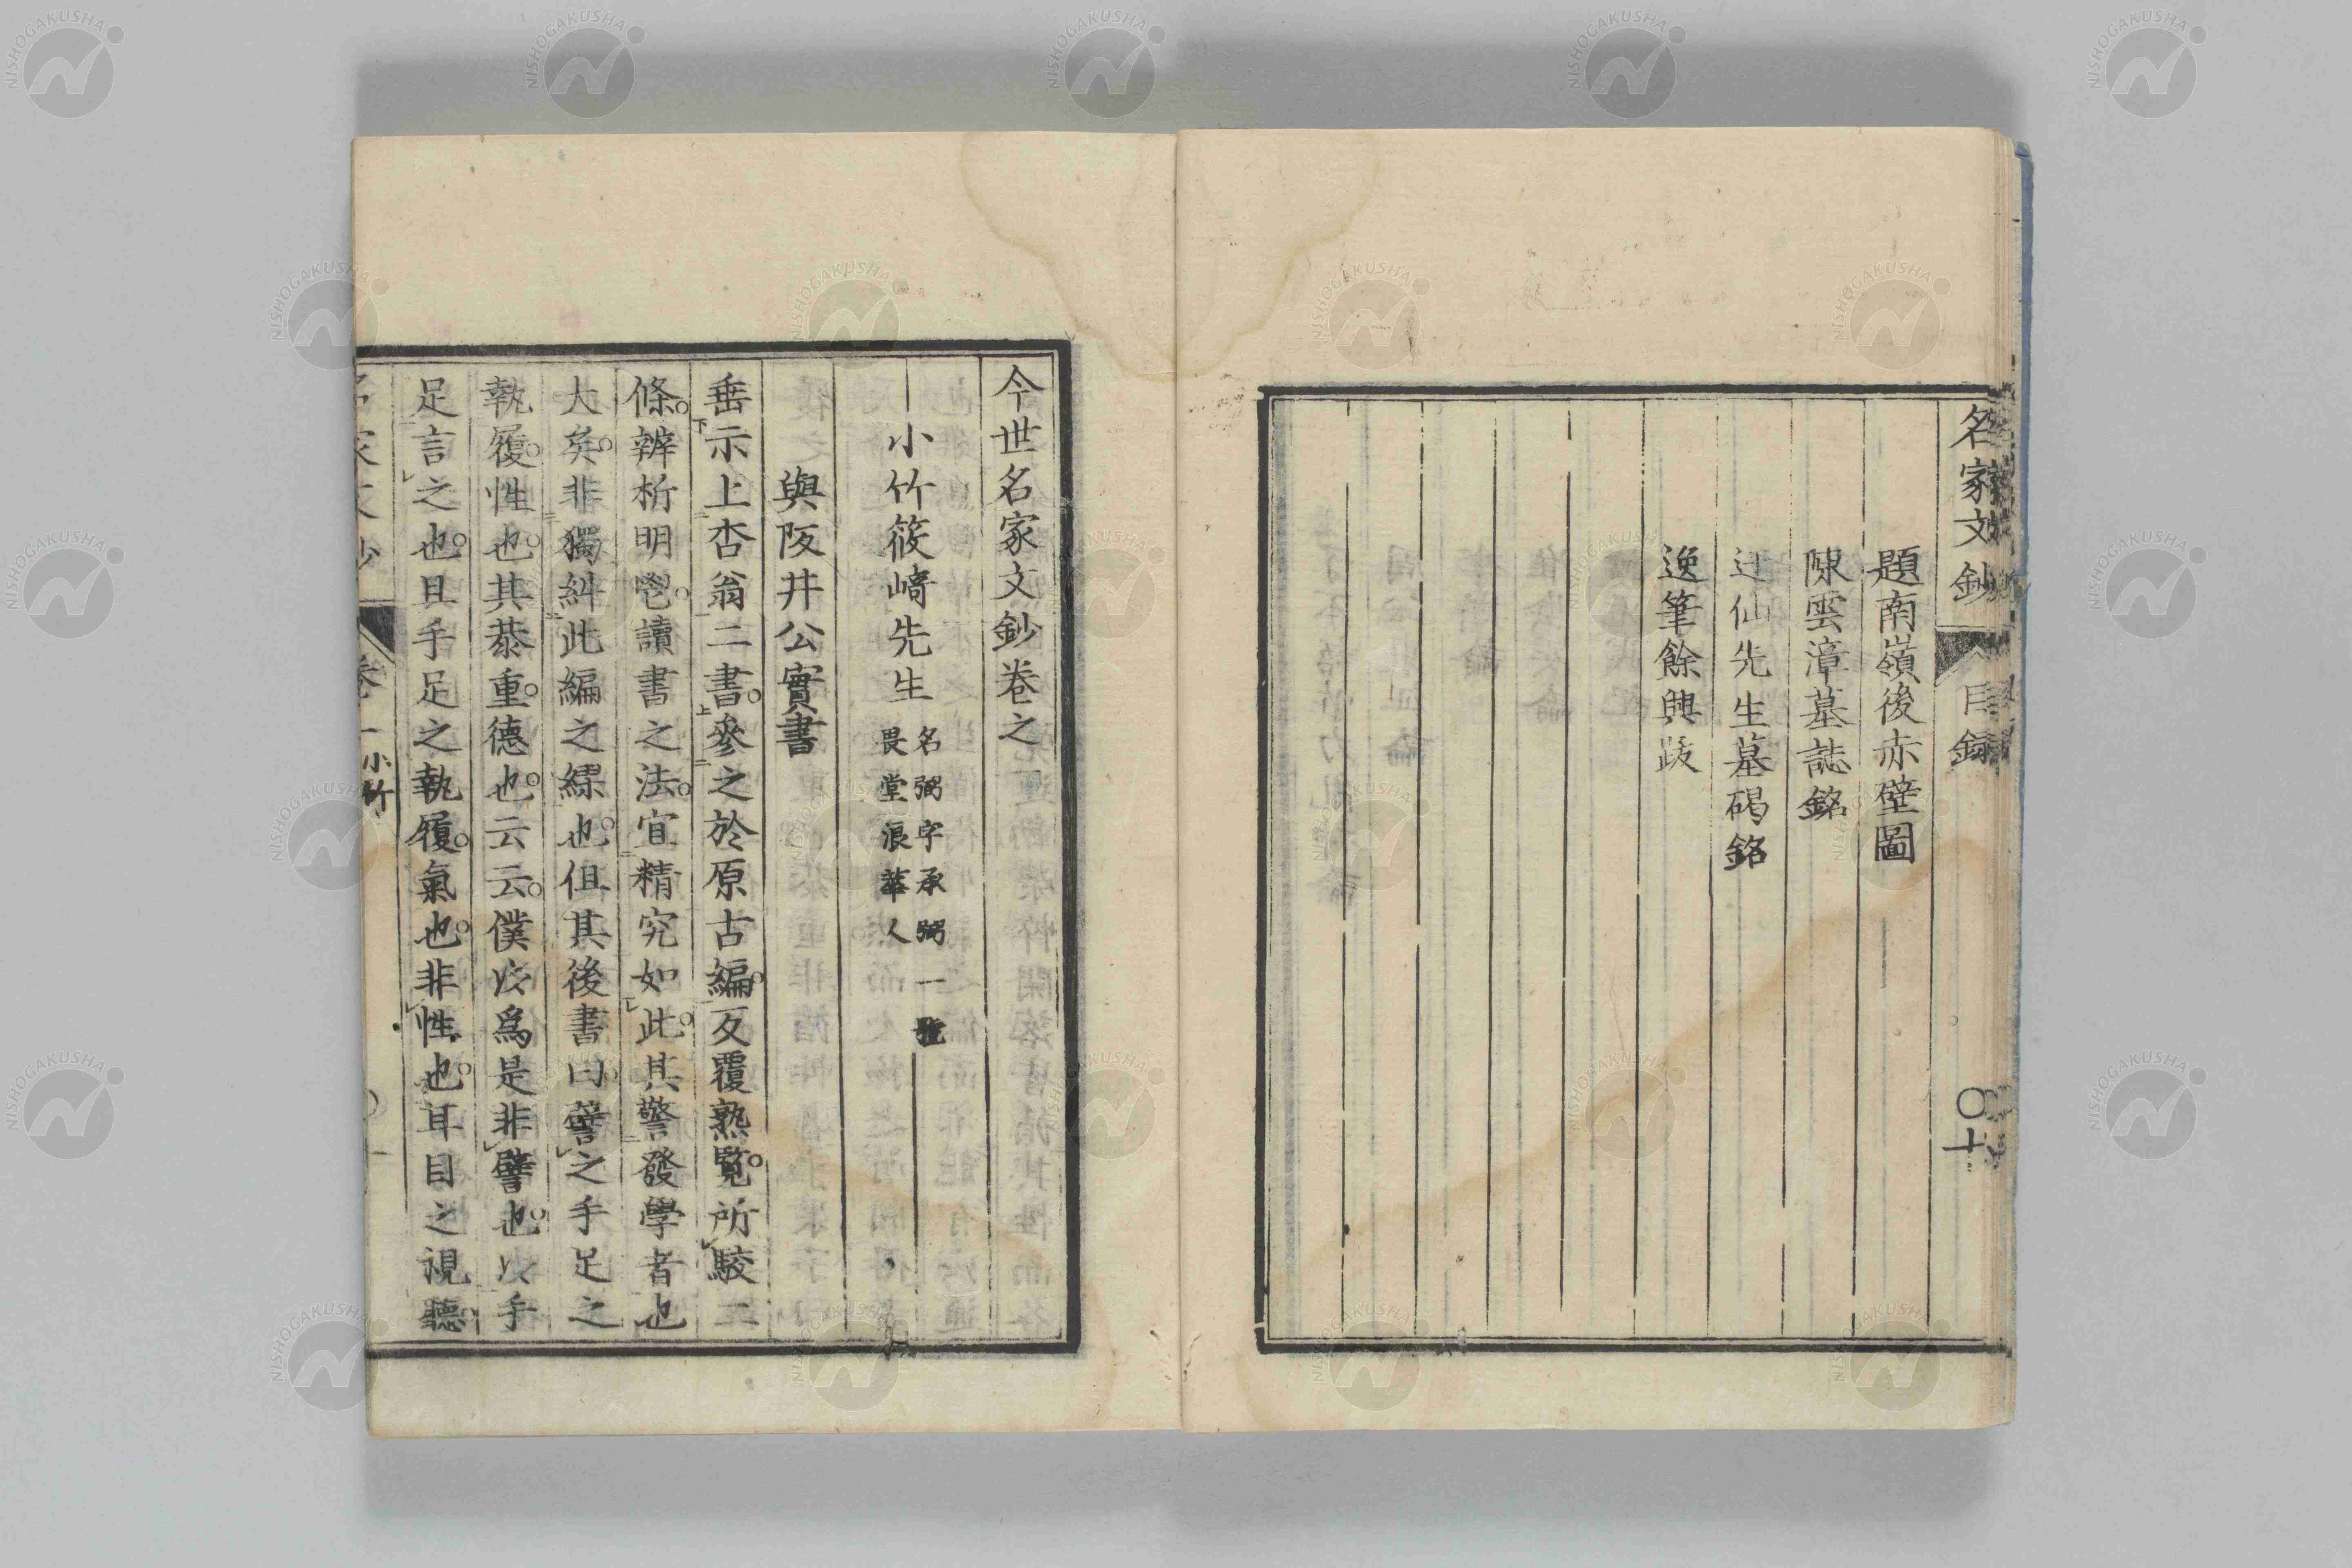 名家文鈔 目錄 〇十
題南嶺後赤壁圖
陳雲漳墓誌銘
辻仙先生墓碣銘
逸筆餘興跋
今世名家文鈔卷之
小竹筱﨑先生 名弼字承弼一號畏堂浪華人
與阪井公實書
垂示上杏翁二書。參之於原古編。反覆熟覧。所駮二
條。辨析明鬯。讀書之法。宜精究如此。其警發學者也
大矣。非獨糾此編之繆也。但其後書曰。譬之手足之
執履。性也。其恭重。德也。云云。僕以爲是非譬也。以手
足言之也。且手足之執履。氣也。非性也。耳目之視聽
名家文鈔 卷一 小竹
NISHOGAKUSHA